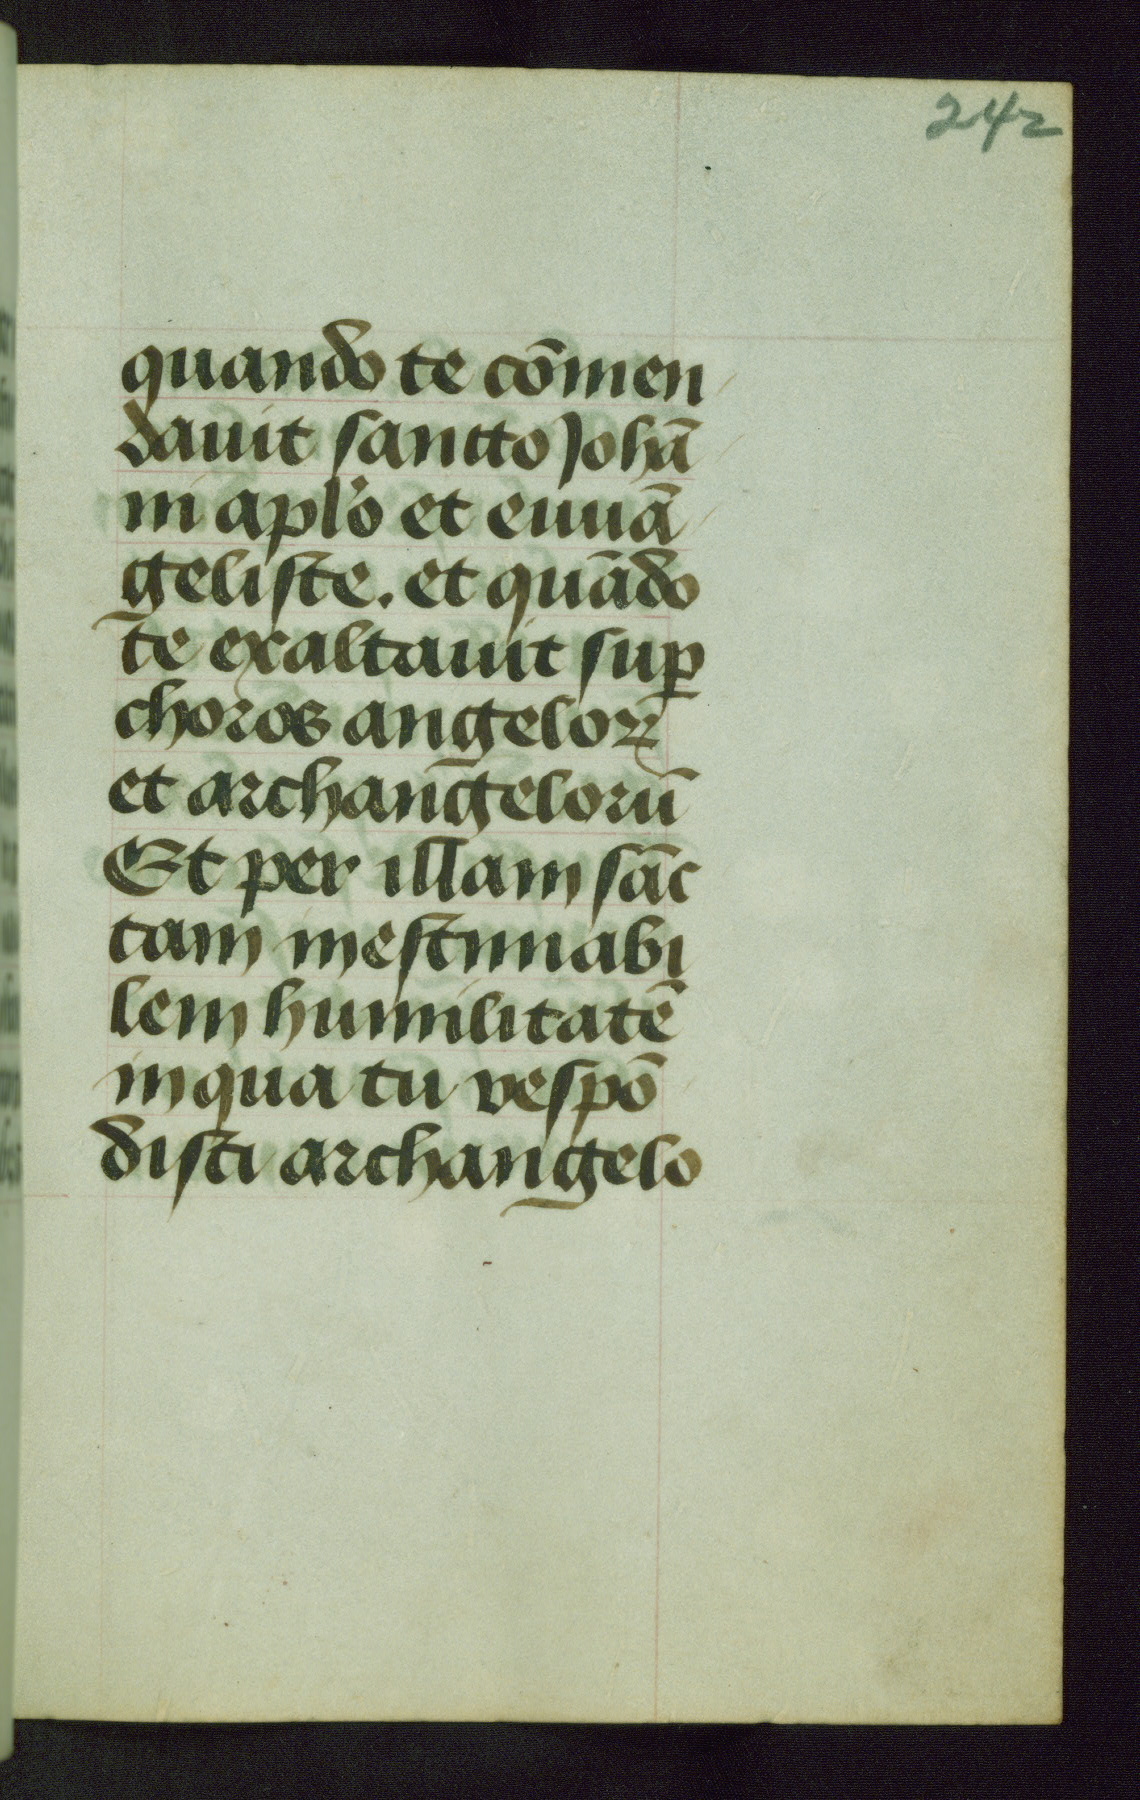 242
quando te cōmen
dauit sancto Johā
ni apl'o et euuā
geliste. et quādo
te exaltauit sup̱
choros angeloꝝ
et archangelorū
Et per illam sāc
tam inestimabi
lem humilitatē
in qua tu respō
disti archangelo